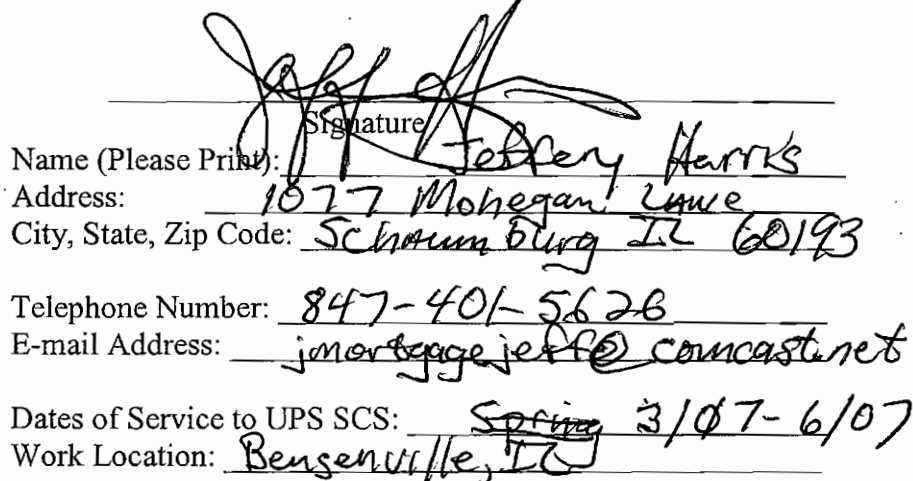 Signature
Name (Please Print): Jeffery Harris
Address: 1077 Mohegan Lane
City, State, Zip Code: Schaumburg IL 60193
Telephone Number: 847-401-5626
E-mail Address: jmortgagejeff@comcast.net
Dates of Service to UPS SCS: Spring 3/07-6/07
Work Location: Bensenville, IL